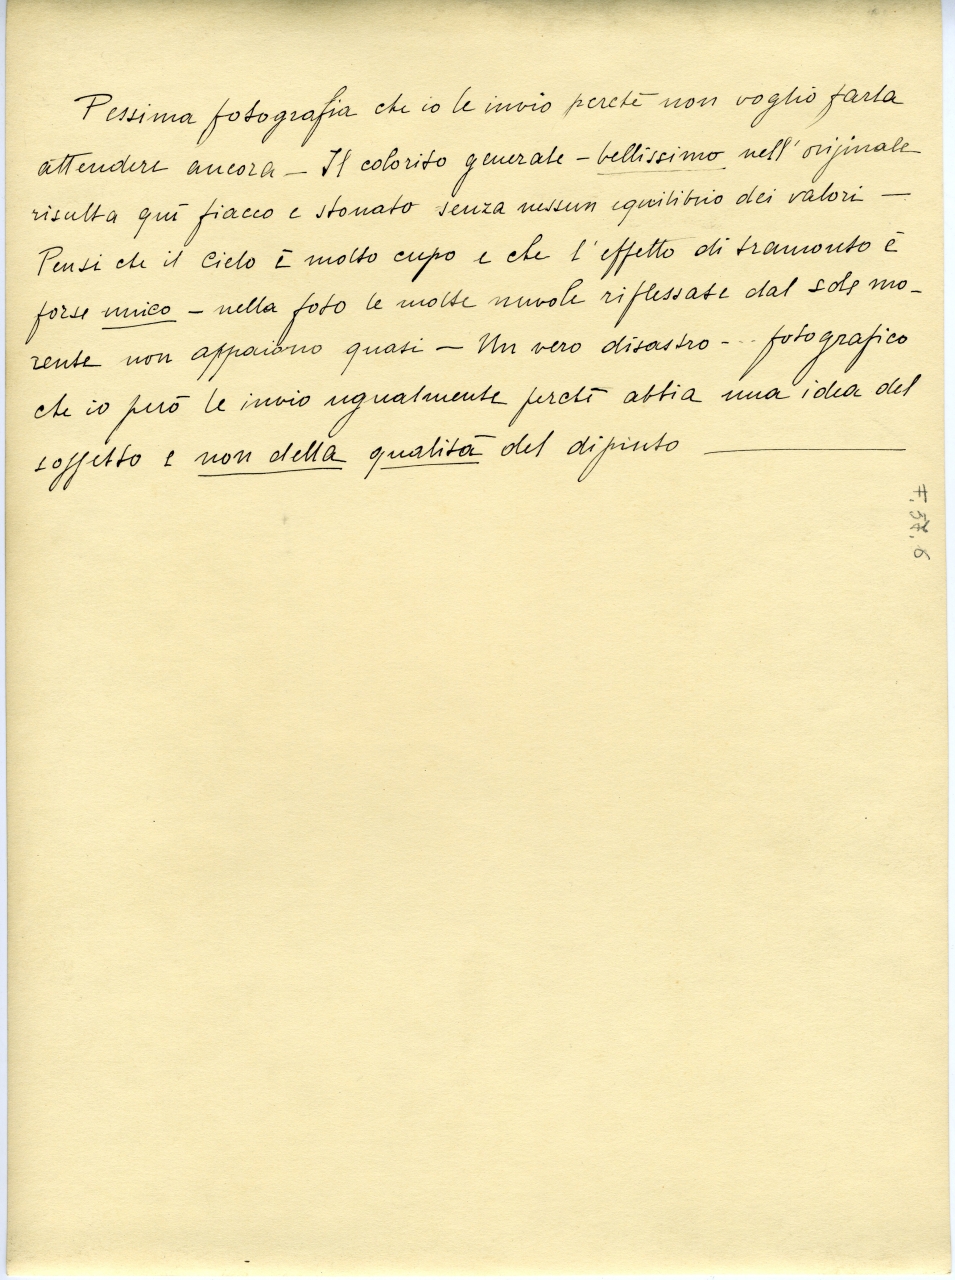 Pessima fotografia che io le invio perchè non voglio farla
attendere ancora – Il colorito generale – bellissimo nell'originale
risulta quì fiacco e stonato senza nessun equilibrio dei valori –
Pensi che il Cielo è molto cupo e che l'effetto di tramonto è
forse unico – nella foto le molte nuvole riflessate dal sole mo-
rente non appaiono quasi – Un vero disastro - .. fotografico
che io però le invio ugualmente perchè abbia una idea del
soggetto e non della qualità del dipinto
F. 37. 6